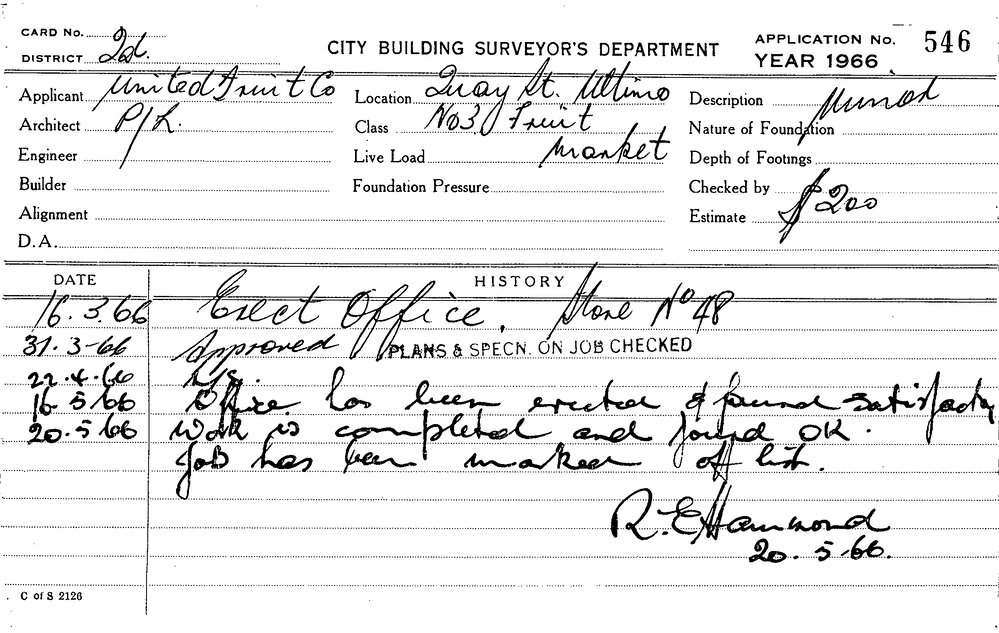 CARD No.
DISTRICT 2d.
CITY BUILDING SURVEYOR'S DEPARTMENT
APPLICATION No. 546
YEAR 1966
Applicant United Fruit Co
Architect P/L
Engineer
Builder
Alignment
D.A.
Location Quay St. Ultimo
Class No3 Fruit
Live Load Market
Foundation Pressure
Description
Nature of Foundation
Depth of Footings
Checked by
Estimate $200
DATE HISTORY
16.3.66 Erect Office. Store No 48
31.3-66 Approved PLANS & SPECN. ON JOB CHECKED
22.4.66
16.5.66 Office has been erected & found satisfactory
20.5.66 Work is completed and found OK.
Job has been marked off list.
R.E Hammond
20.5.66.
C of S 2126